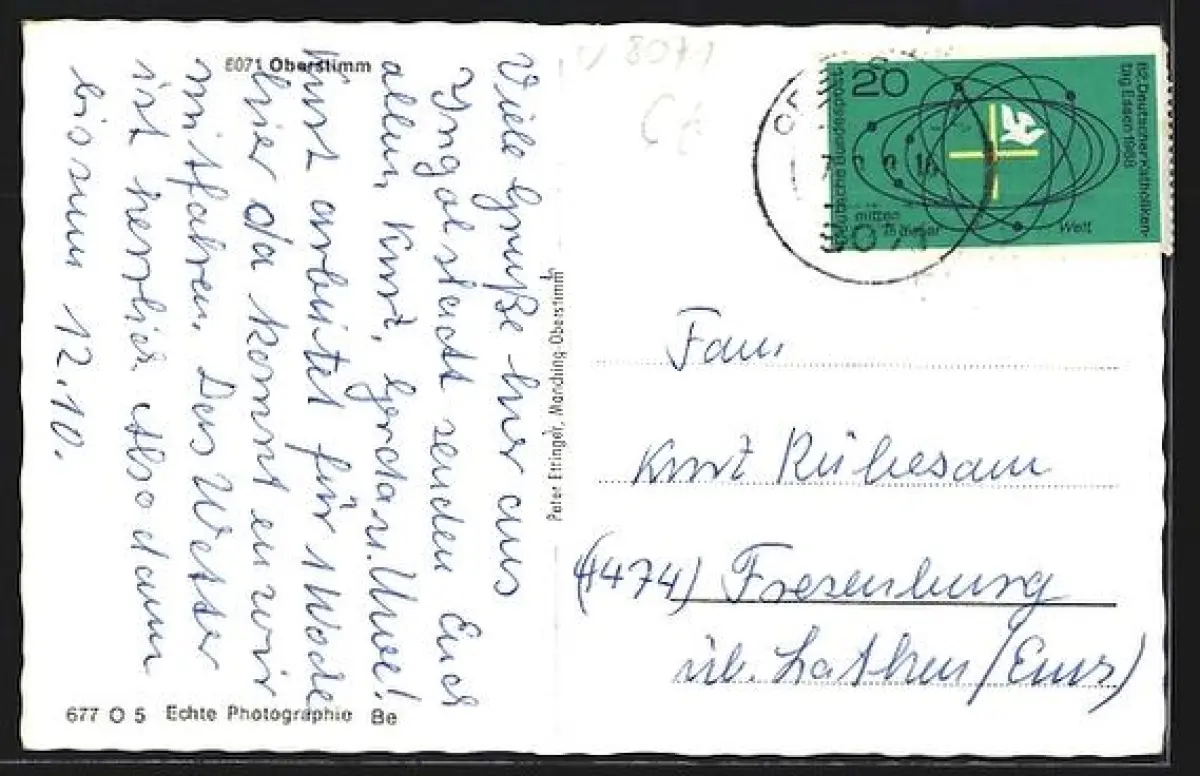 8071 Oberstimm
Viele Grüße hier aus
Ingolstadt senden Euch
allen Kurt, Gerda u. Uwe!
Kurt arbeitet für 1 Woche
hier da konnten wir
mitfahren. Das Wetter
ist herrlich. Also dann
bis zum 12.10.
677 O 5 Echte Photographie Be
Peter Etringer, Manching-Oberstimm
V 8071
20
Deutsche Bundespost
82. Deutscher Katholiken-
tag Essen 1968
mitten
in dieser Welt
Fam.
Kurt Rübesam
(4474) Fresenburg
üb. Lathen (Ems)